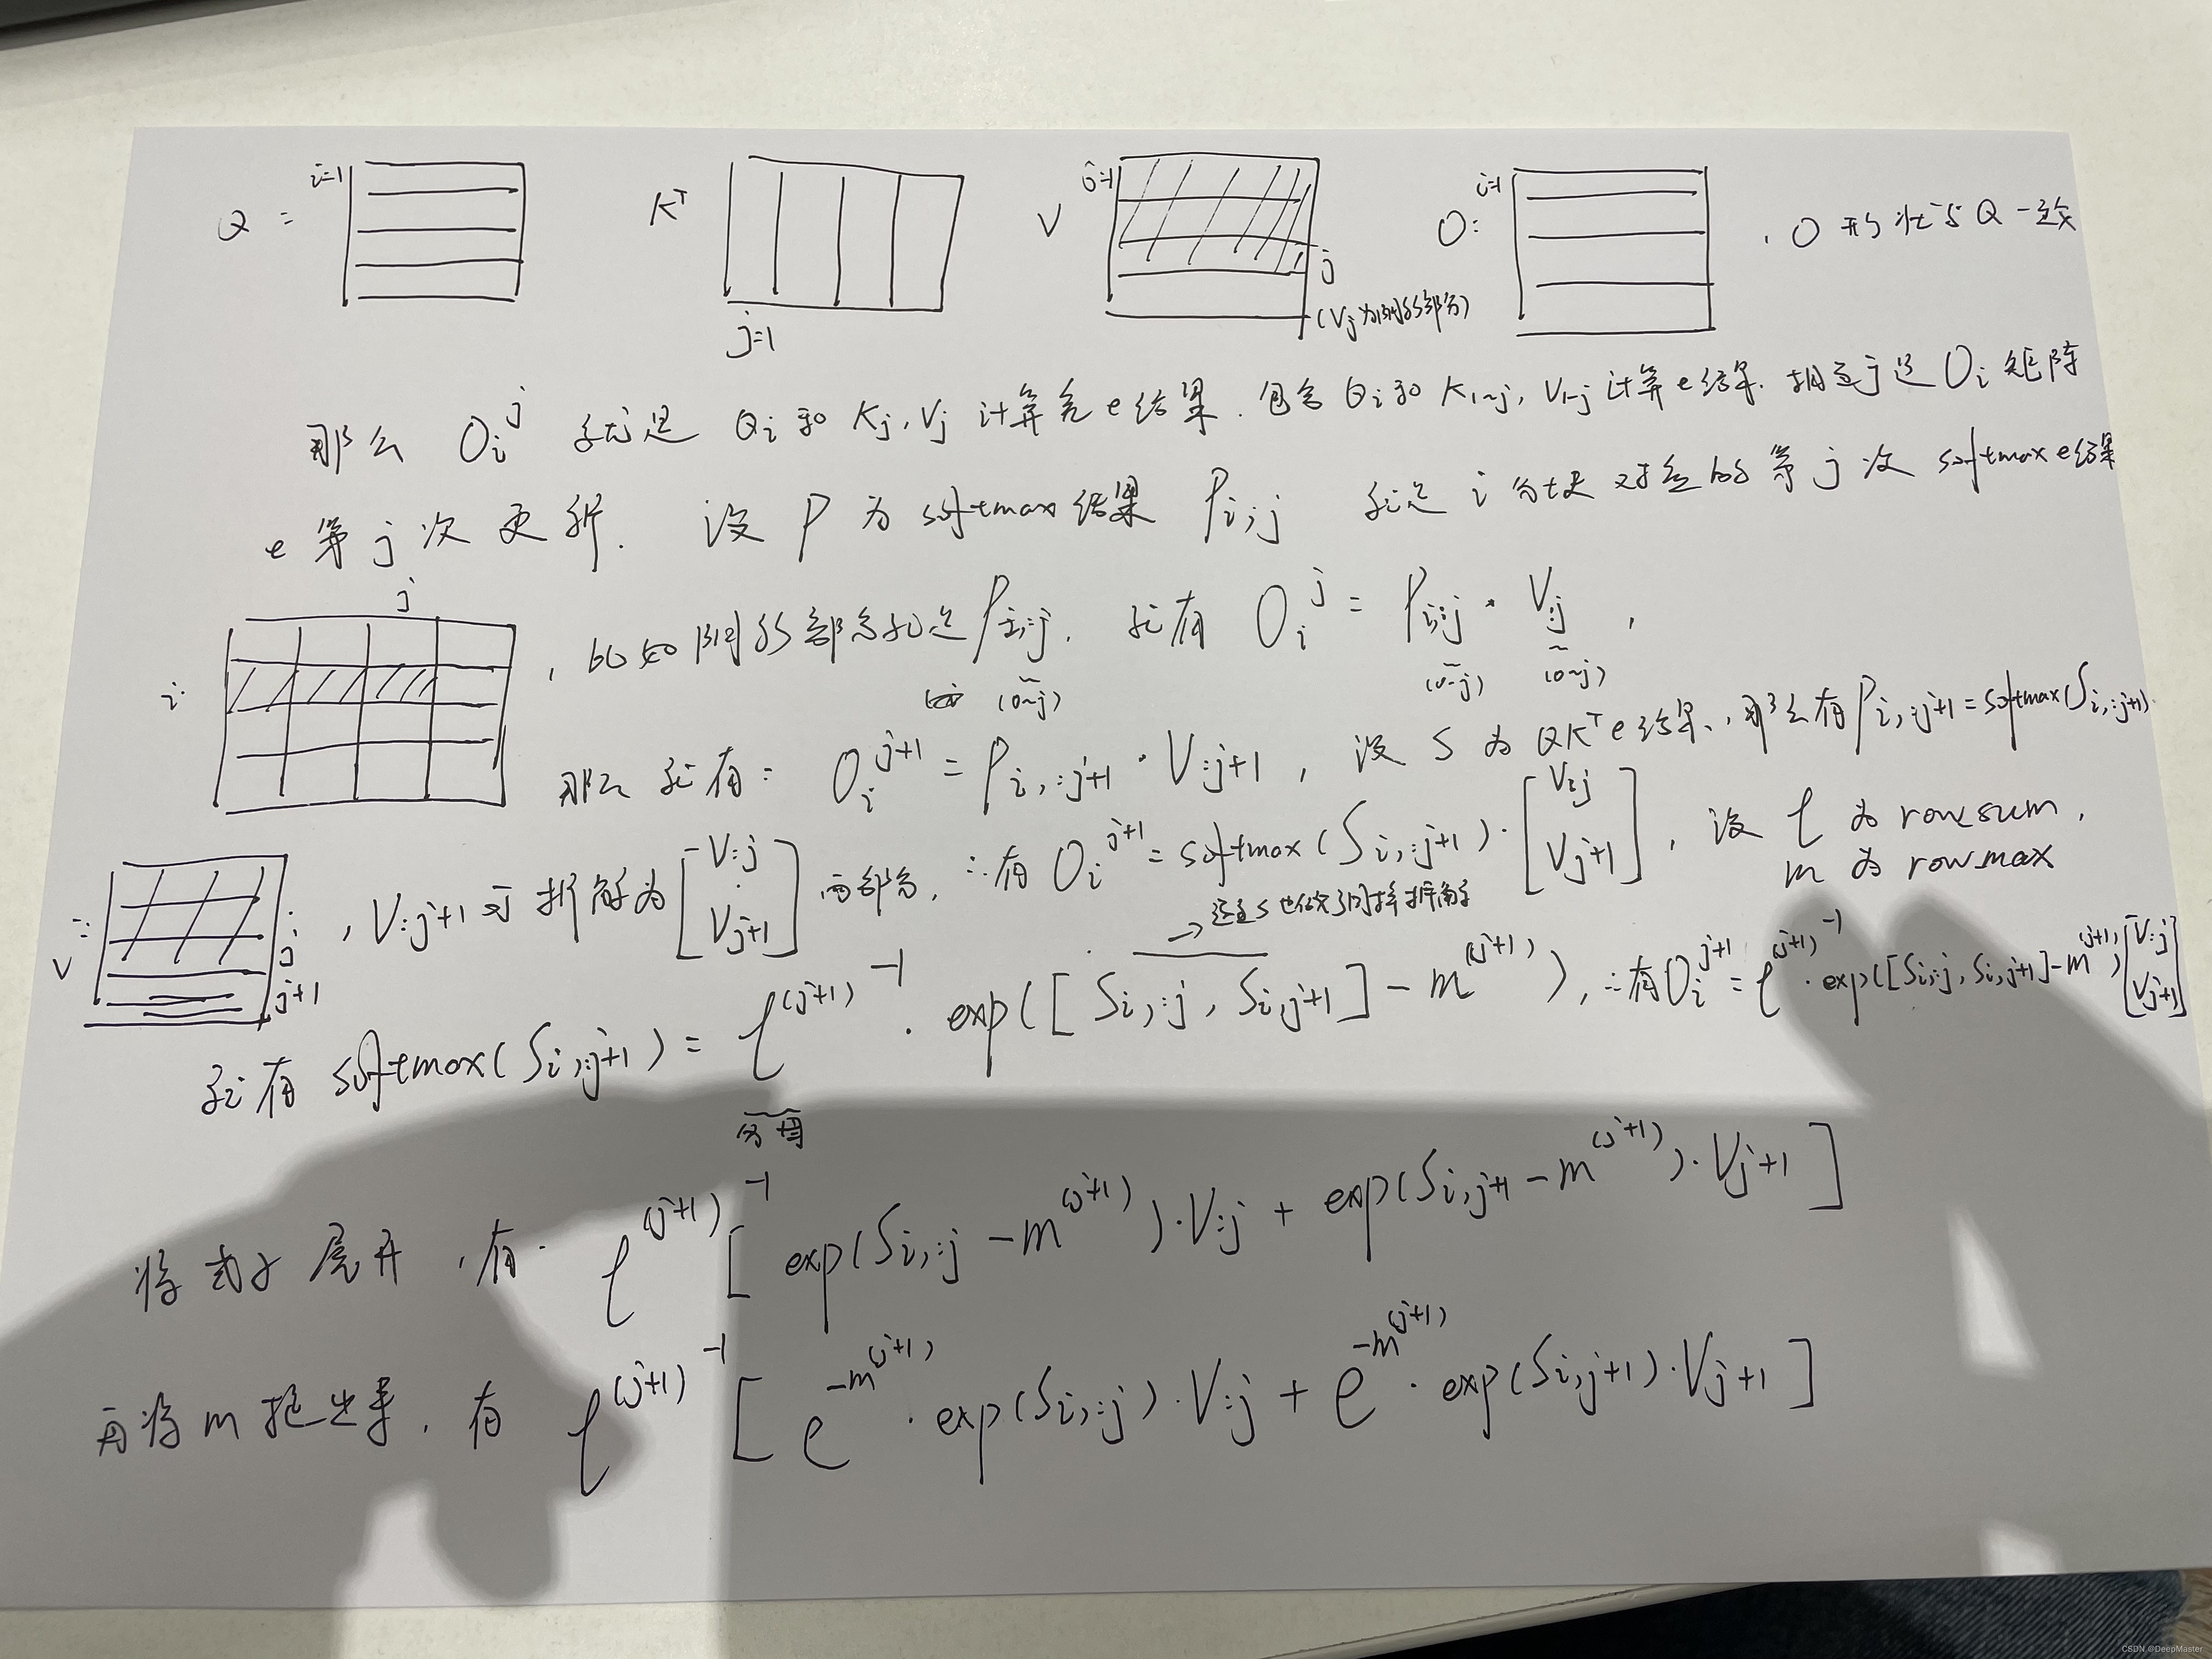 Q = i=1
K^T j=1
V j=1 j (Vj为阴影部分)
O: i=1 , O 形状与Q一致
那么 O_i^j 就是 Q_i 和 K_j, V_j 计算完e结果. 包含 Q_i和 K_1~j, V_1~j 计算e结果. 相当于是 O_i 矩阵
e 第 j 次 更新. 设 P 为 softmax 结果 P_i,:j 就是 i 分块 对应的 第 j 次 softmax e结果
j
i: , 比如阴影部分就是 P_i,:j. 就有 O_i^j = P_i,:j · V_:j ,
(0~j) (0~j) (0~j)
那么 就有: O_i^{j+1} = P_i,:j+1 · V_:j+1 , 设 S 为 QK^T e结果, 那么有 P_i,:j+1 = softmax(S_i,:j+1).
V: j j+1 , V_:j+1 可 拆解为 [V_:j V_j+1] 两部分, ∴有 O_i^{j+1} = softmax(S_i,:j+1) · [V_:j V_j+1] , 设 ℓ 为 rowsum,
m 为 rowmax
→ 这里S也做了同样拆解
就有 softmax(S_i,:j+1) = ℓ^{(j+1)-1} · exp([S_i,:j, S_i,j+1] - m^{(j+1)}), ∴有 O_i^{j+1} = ℓ^{(j+1)-1} · exp([S_i,:j, S_i,j+1] - m^{(j+1)}) [V_:j V_j+1]
分母
将式子展开, 有. ℓ^{(j+1)-1} [exp(S_i,:j - m^{(j+1)}) · V_:j + exp(S_i,j+1 - m^{(j+1)}) · V_j+1]
再将 m 提出来, 有 ℓ^{(j+1)-1} [e^{-m^{(j+1)}} · exp(S_i,:j) · V_:j + e^{-m^{(j+1)}} · exp(S_i,j+1) · V_j+1]
CSDN @DeepMaster